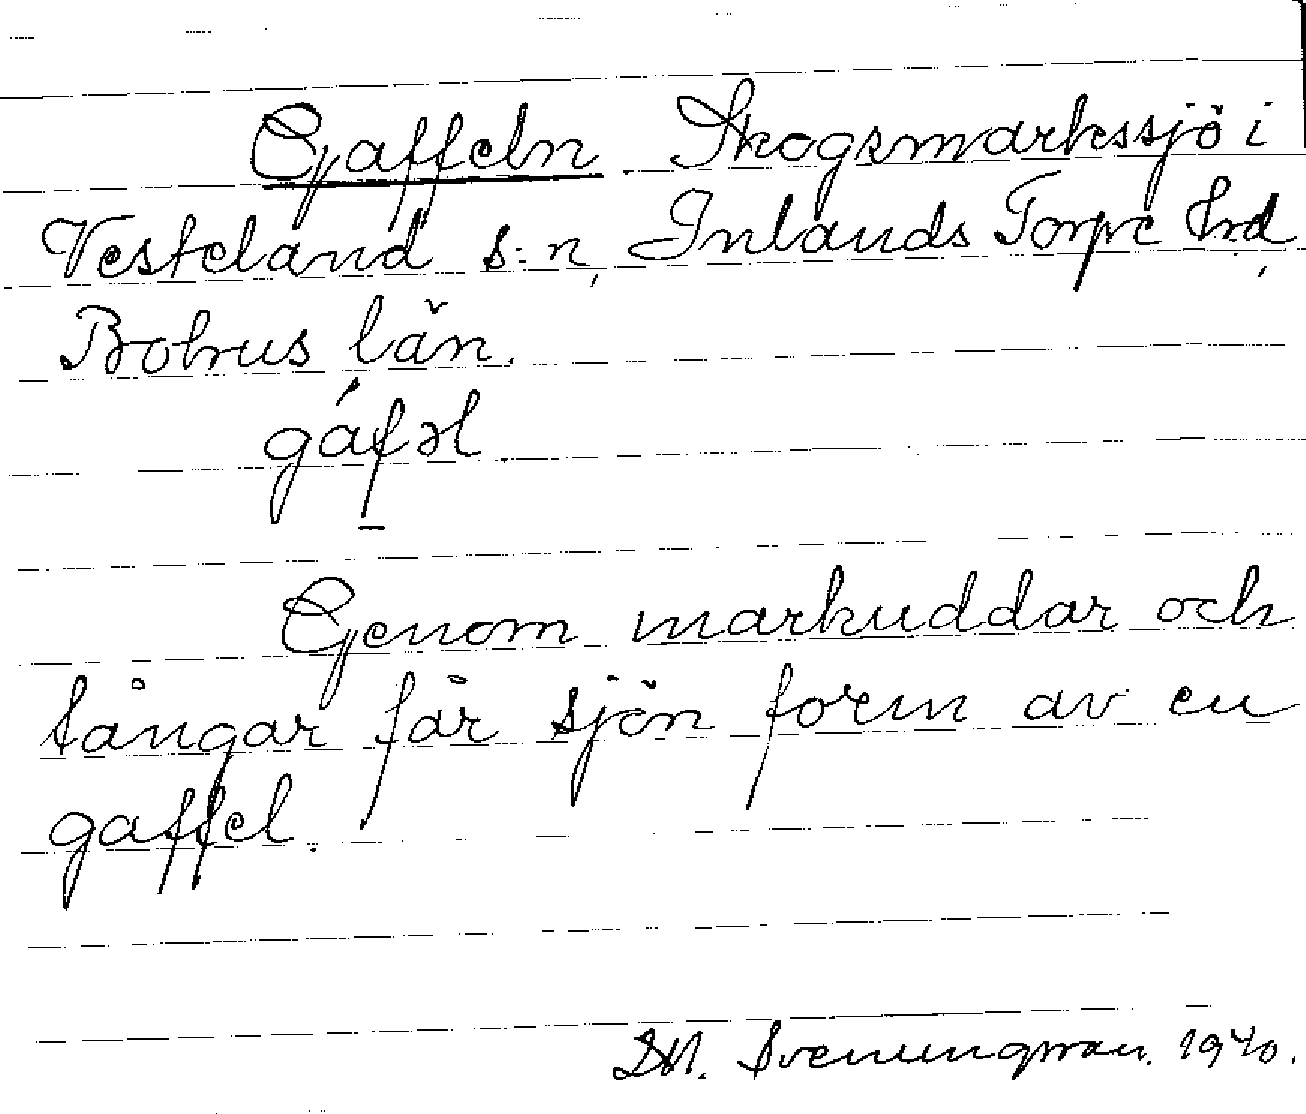 Gaffeln. Skogsmarkssjö i
Vesteland s:n, Inlands Torpe hrd,
Bohus län.
gáfəl
Genom markuddar och
tångar får sjön form av en
gaffel.
Svenungsson. 1940.